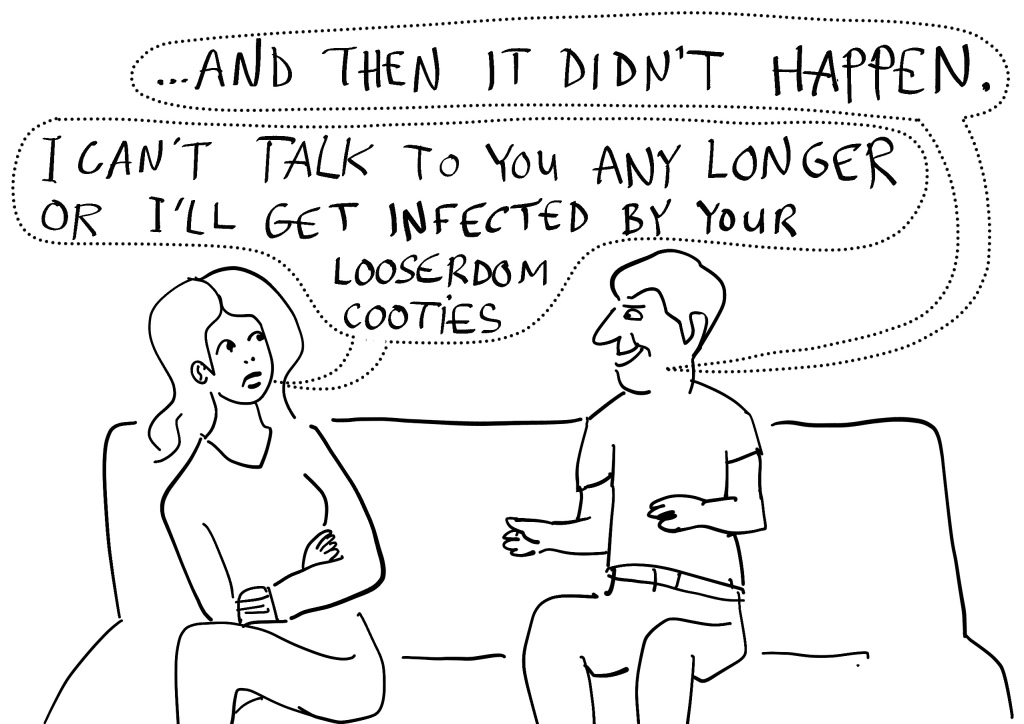 ...AND THEN IT DIDN'T HAPPEN.
I CAN'T TALK TO YOU ANY LONGER
OR I'LL GET INFECTED BY YOUR
LOOSERDOM
COOTIES